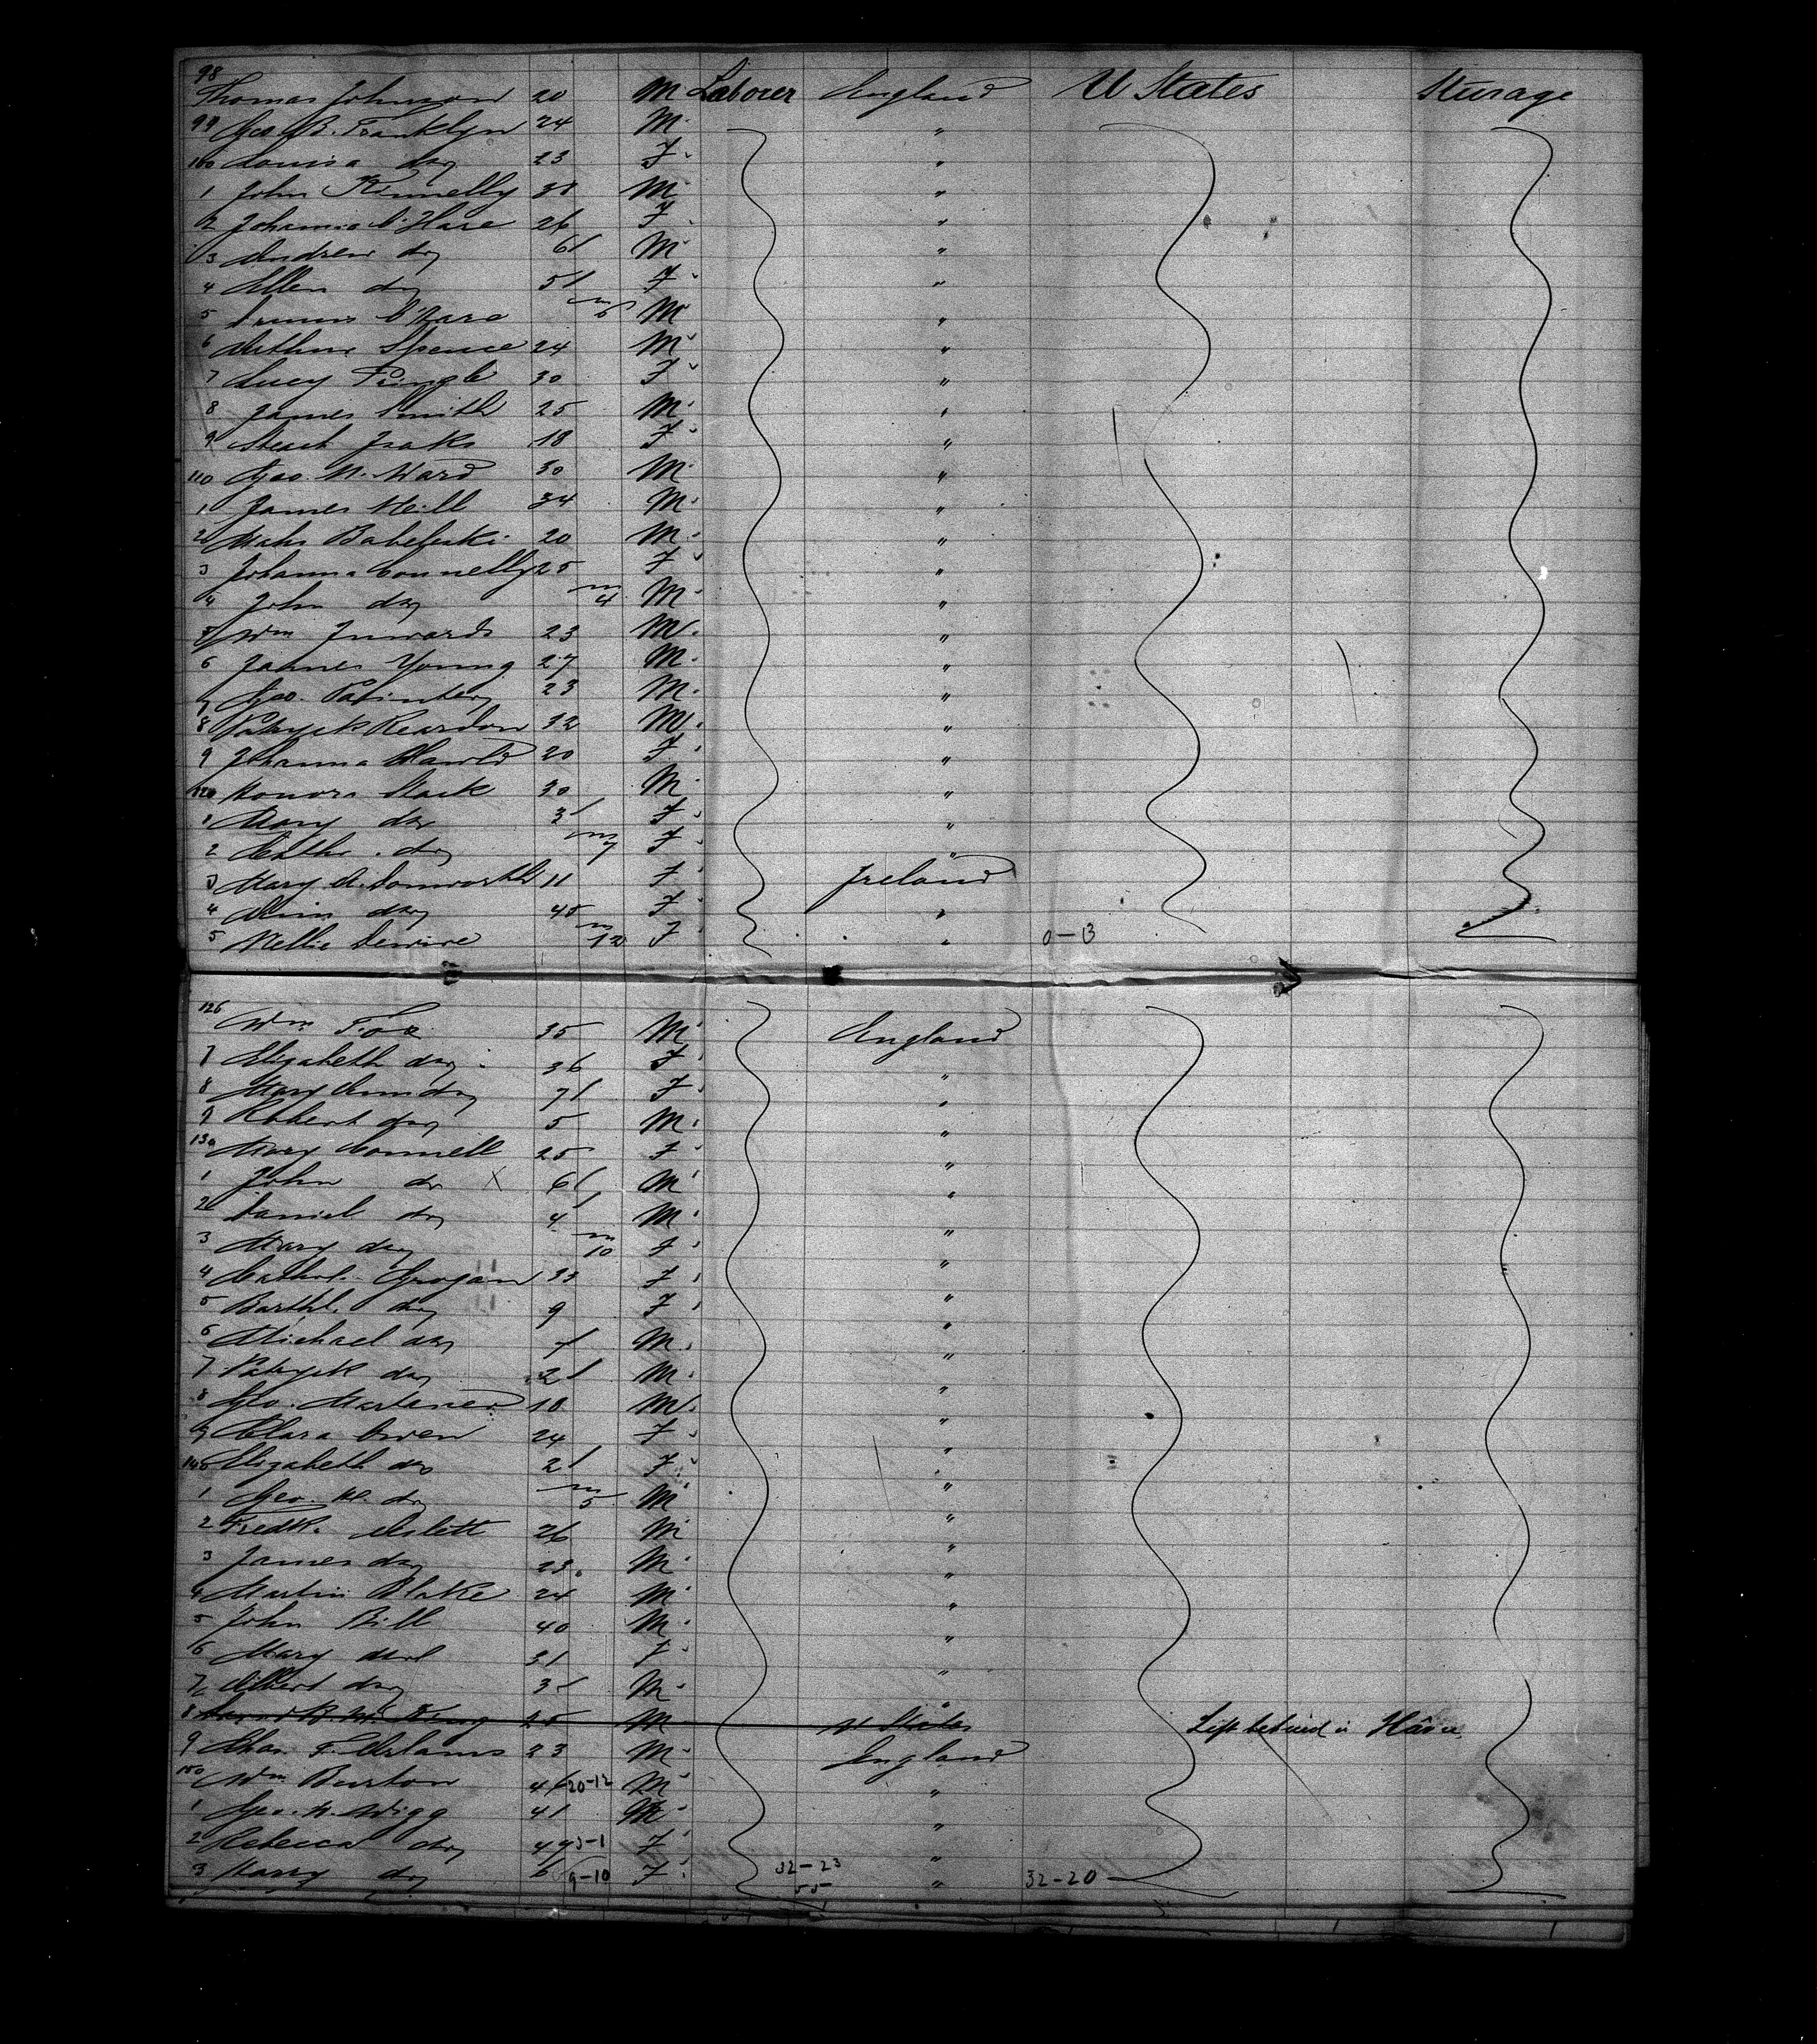 98 Thomas Johnson 20 M Laborer England U States Sturage
99 Geo. B. Franklyn 24 M "
100 Louisa do 23 F "
1 John Kennelly 38 M "
2 Johanna O'Hare 26 F "
3 Andrew do 6 M "
4 Ellen do 5 F "
5 O'Hare m 6 M "
6 Arthur Spence 24 M "
7 Lucy Pringle 30 F "
8 James Smith 25 M "
9 18 F "
110 Geo. N. Ward 30 M "
1 James Neill 34 M "
2 20 M "
3 Johanna Connelly 25 F "
4 John do m 4 M "
5 Wm Inwards 23 M "
6 James Young 27 M "
7 Geo. 23 M "
8 Patryck Reardon 12 M "
9 Johanna 20 F "
120 Honora Stack 30 M "
1 Mary do 3 F "
2 Cathr. do m 7 F "
3 Mary A. 11 F Ireland
4 do 45 F "
5 Nellie m 12 F " 0-13
126 Wm Fox 35 M England
7 Elizabeth do 36 F "
8 Mary Ann do 7 F "
9 Robert do 5 M "
130 Mary Connell 25 F "
1 John do X 6 M "
2 Daniel do 4 M "
3 Mary do m 10 F "
4 Grogan 33 F "
5 Barthl. do 9 F "
6 Michael do 7 M "
7 Patryck do 2 M "
8 Geo. 18 M "
9 Clara Owen 24 F "
140 Elizabeth do 2 F "
1 Geo. H. do m 5 M "
2 Fredk. Aslett 26 M "
3 James do 23 M "
4 Martin Blake 24 M "
5 John Bill 40 M "
6 Mary do 31 F "
7 Albert do 3 M "
8 25 M U States Left behind in Hâvre
9 Chas. F. Adams 23 M England
150 Wm Burton 4 20-12 M "
1 Geo. N. Wigg 41 M "
2 Rebecca do 47 5-1 F "
3 Harry do 6 9-10 F 32-23 " 32-20
55